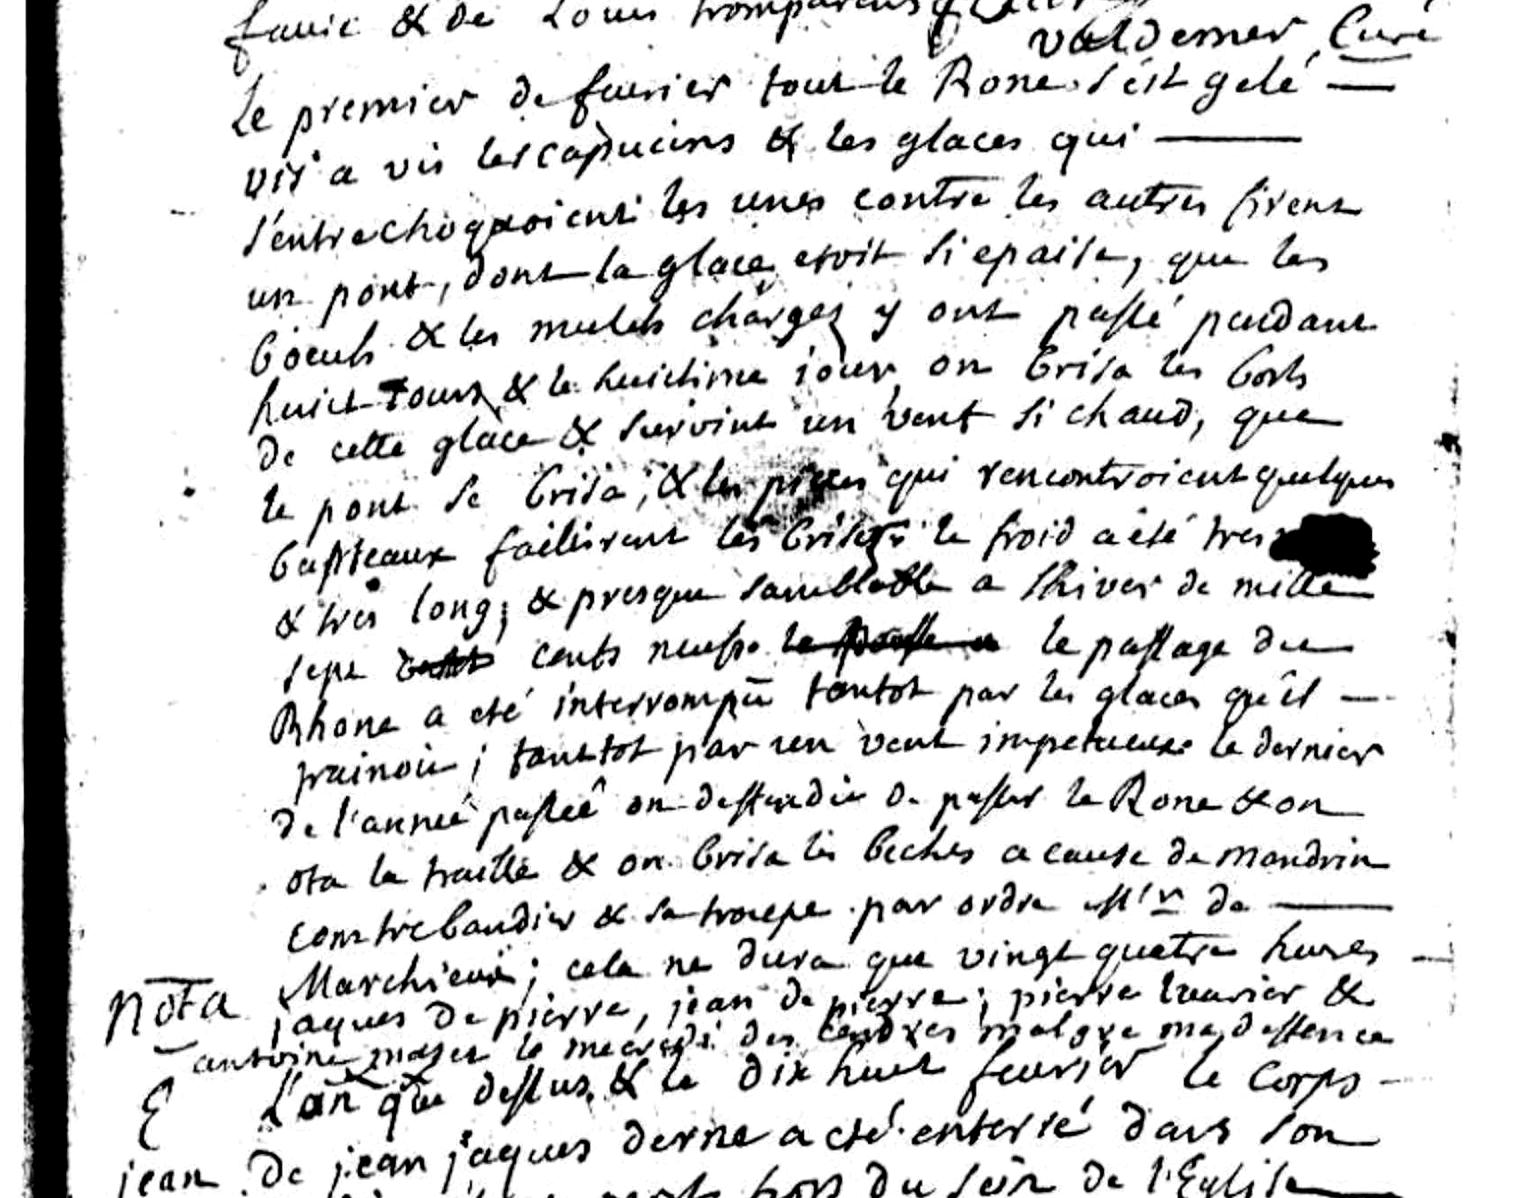 favie & de Louis
valdemer Curé
Le premier de fevrier tout le Rone s'est gelé —
vis a vis les capucins & les glaces qui —
s'entrechoquoient les unes contre les autres firent
un pont, dont la glace etoit si epaise, que les
boeufs & les mulets chargez y ont passé pendant
huict Jours & le huictieme jour on brisa les borts
de cette glace & survint un vent si chaud, que
le pont se brisa, & les pieces qui rencontroient quelques
basteaux faillirent les briser le froid a été tres
& tres long, & presque samblable a l'hiver de mille
sept cents neuf. le passage du
Rhone a eté interrompu tantot par les glaces qu'il —
trainoit; tantot par un vent impetueux le dernier
de l'année passeé on deffendit de passer le Rone & on
ota la traille & on brisa les beches a cause de Mandrin
contrebandier & sa troupe par ordre Mr de —
Marchieux; cela ne dura que vingt quatre hures
nota jaques de pierre, jean de pierre; pierre &
antoine le mecredi des cendres malgre ma deffence
L'an que dessus & le dix huit fevrier le corps
jean de jean jaques derne a eté enterré dans son
hors du sein de l'Eglise